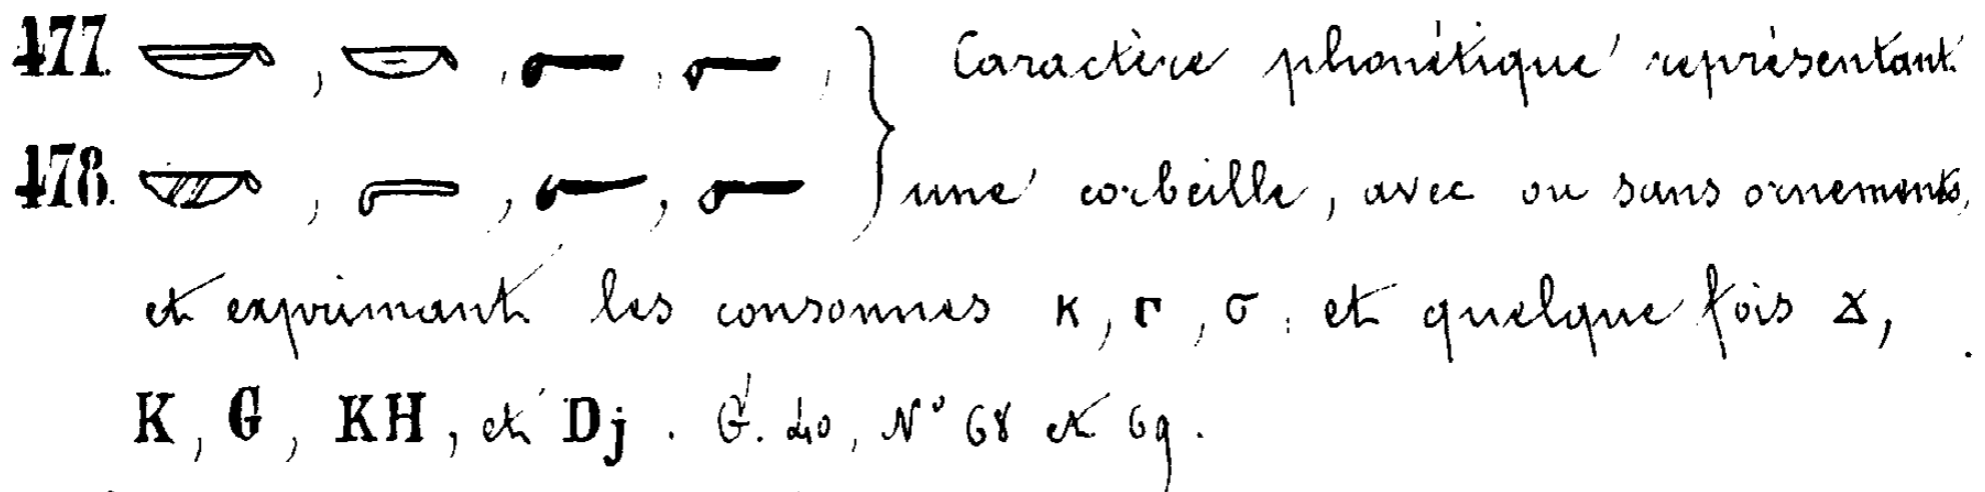 477. 𓎡, 𓎡, , , } Caractère phonétique représentant
478. 𓎡, , , } une corbeille, avec ou sans ornements,
et exprimant les consonnes ⲕ, ⲅ, ϭ, et quelque fois ϫ,
K, G, KH, et Dj. G. 40, N° 68 et 69.